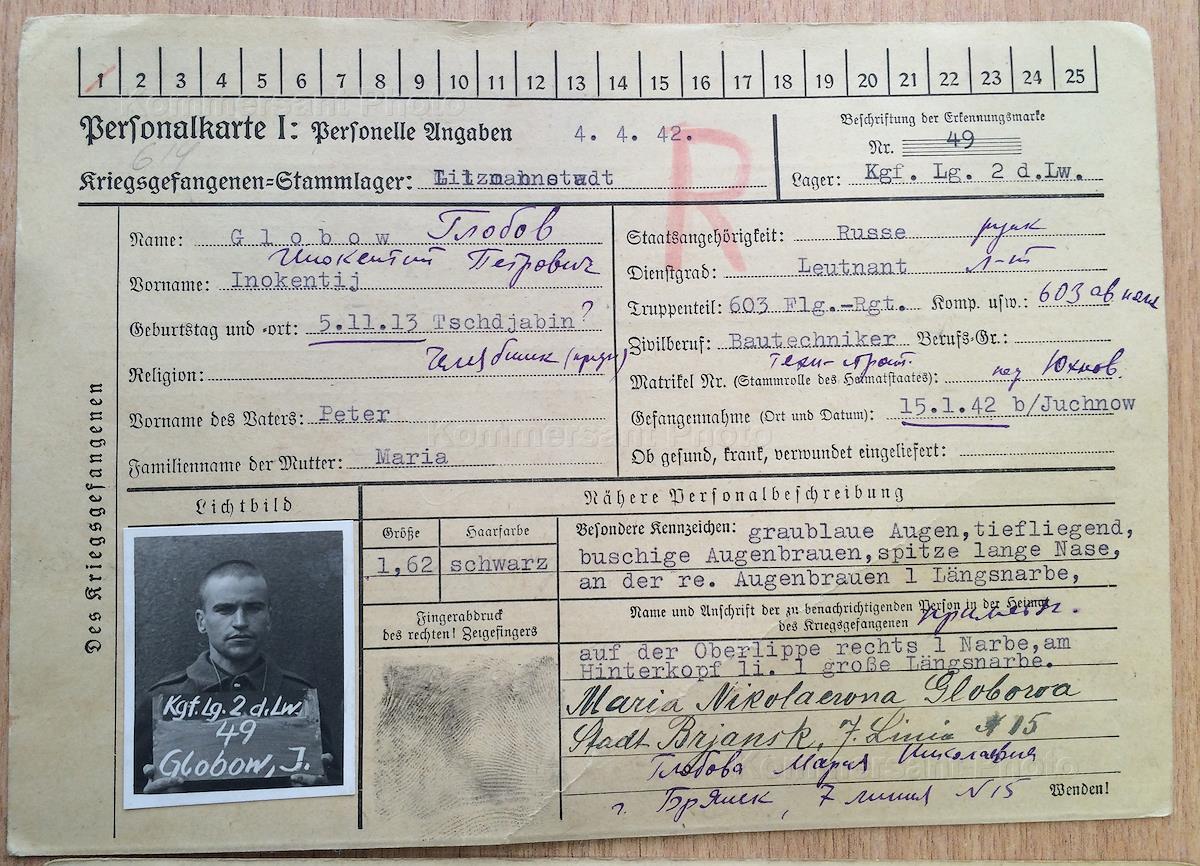 1 2 3 4 5 6 7 8 9 10 11 12 13 14 15 16 17 18 19 20 21 22 23 24 25
Kommersant Photo
Personalkarte I: Personelle Angaben 4. 4. 42.
614
Kriegsgefangenen=Stammlager: Litzmannstadt
R
Beschriftung der Erkennungsmarke
Nr. 49
Lager: Kgf. Lg. 2 d.Lw.
Des Kriegsgefangenen
Name: Globow Глобов
Инокентий Петрович
Vorname: Inokentij
Geburtstag und =ort: 5.11.13 Tschdjabin?
Челябинск
Religion:
Vorname des Vaters: Peter
Familienname der Mutter: Maria
Staatsangehörigkeit: Russe
Dienstgrad: Leutnant Л-т
Truppenteil: 603 Flg.-Rgt. Komp. usw.: 603 ав
Zivilberuf: Bautechniker Berufs-Gr.:
Техн-
Matrikel Nr. (Stammrolle des Heimatstaates): Юхнов.
Gefangennahme (Ort und Datum): 15.1.42 b/Juchnow
Kommersant Photo
Ob gesund, krank, verwundet eingeliefert:
Lichtbild
Kgf. Lg. 2 d. Lw.
49
Globow, J.
Nähere Personalbeschreibung
Größe Haarfarbe
1,62 schwarz
Fingerabdruck
des rechten! Zeigefingers
Besondere Kennzeichen: graublaue Augen, tiefliegend,
buschige Augenbrauen, spitze lange Nase,
an der re. Augenbrauen 1 Längsnarbe,
Name und Anschrift der zu benachrichtigenden Person in der Heimat
des Kriegsgefangenen
auf der Oberlippe rechts 1 Narbe, am
Hinterkopf li. 1 große Längsnarbe.
Maria Nikolaewna Globowa
Stadt Brjansk, 7. Linia N 15
Глобова Мария Николаевна
Kommersant Photo
г. Брянск, 7 линия N 15
Wenden!